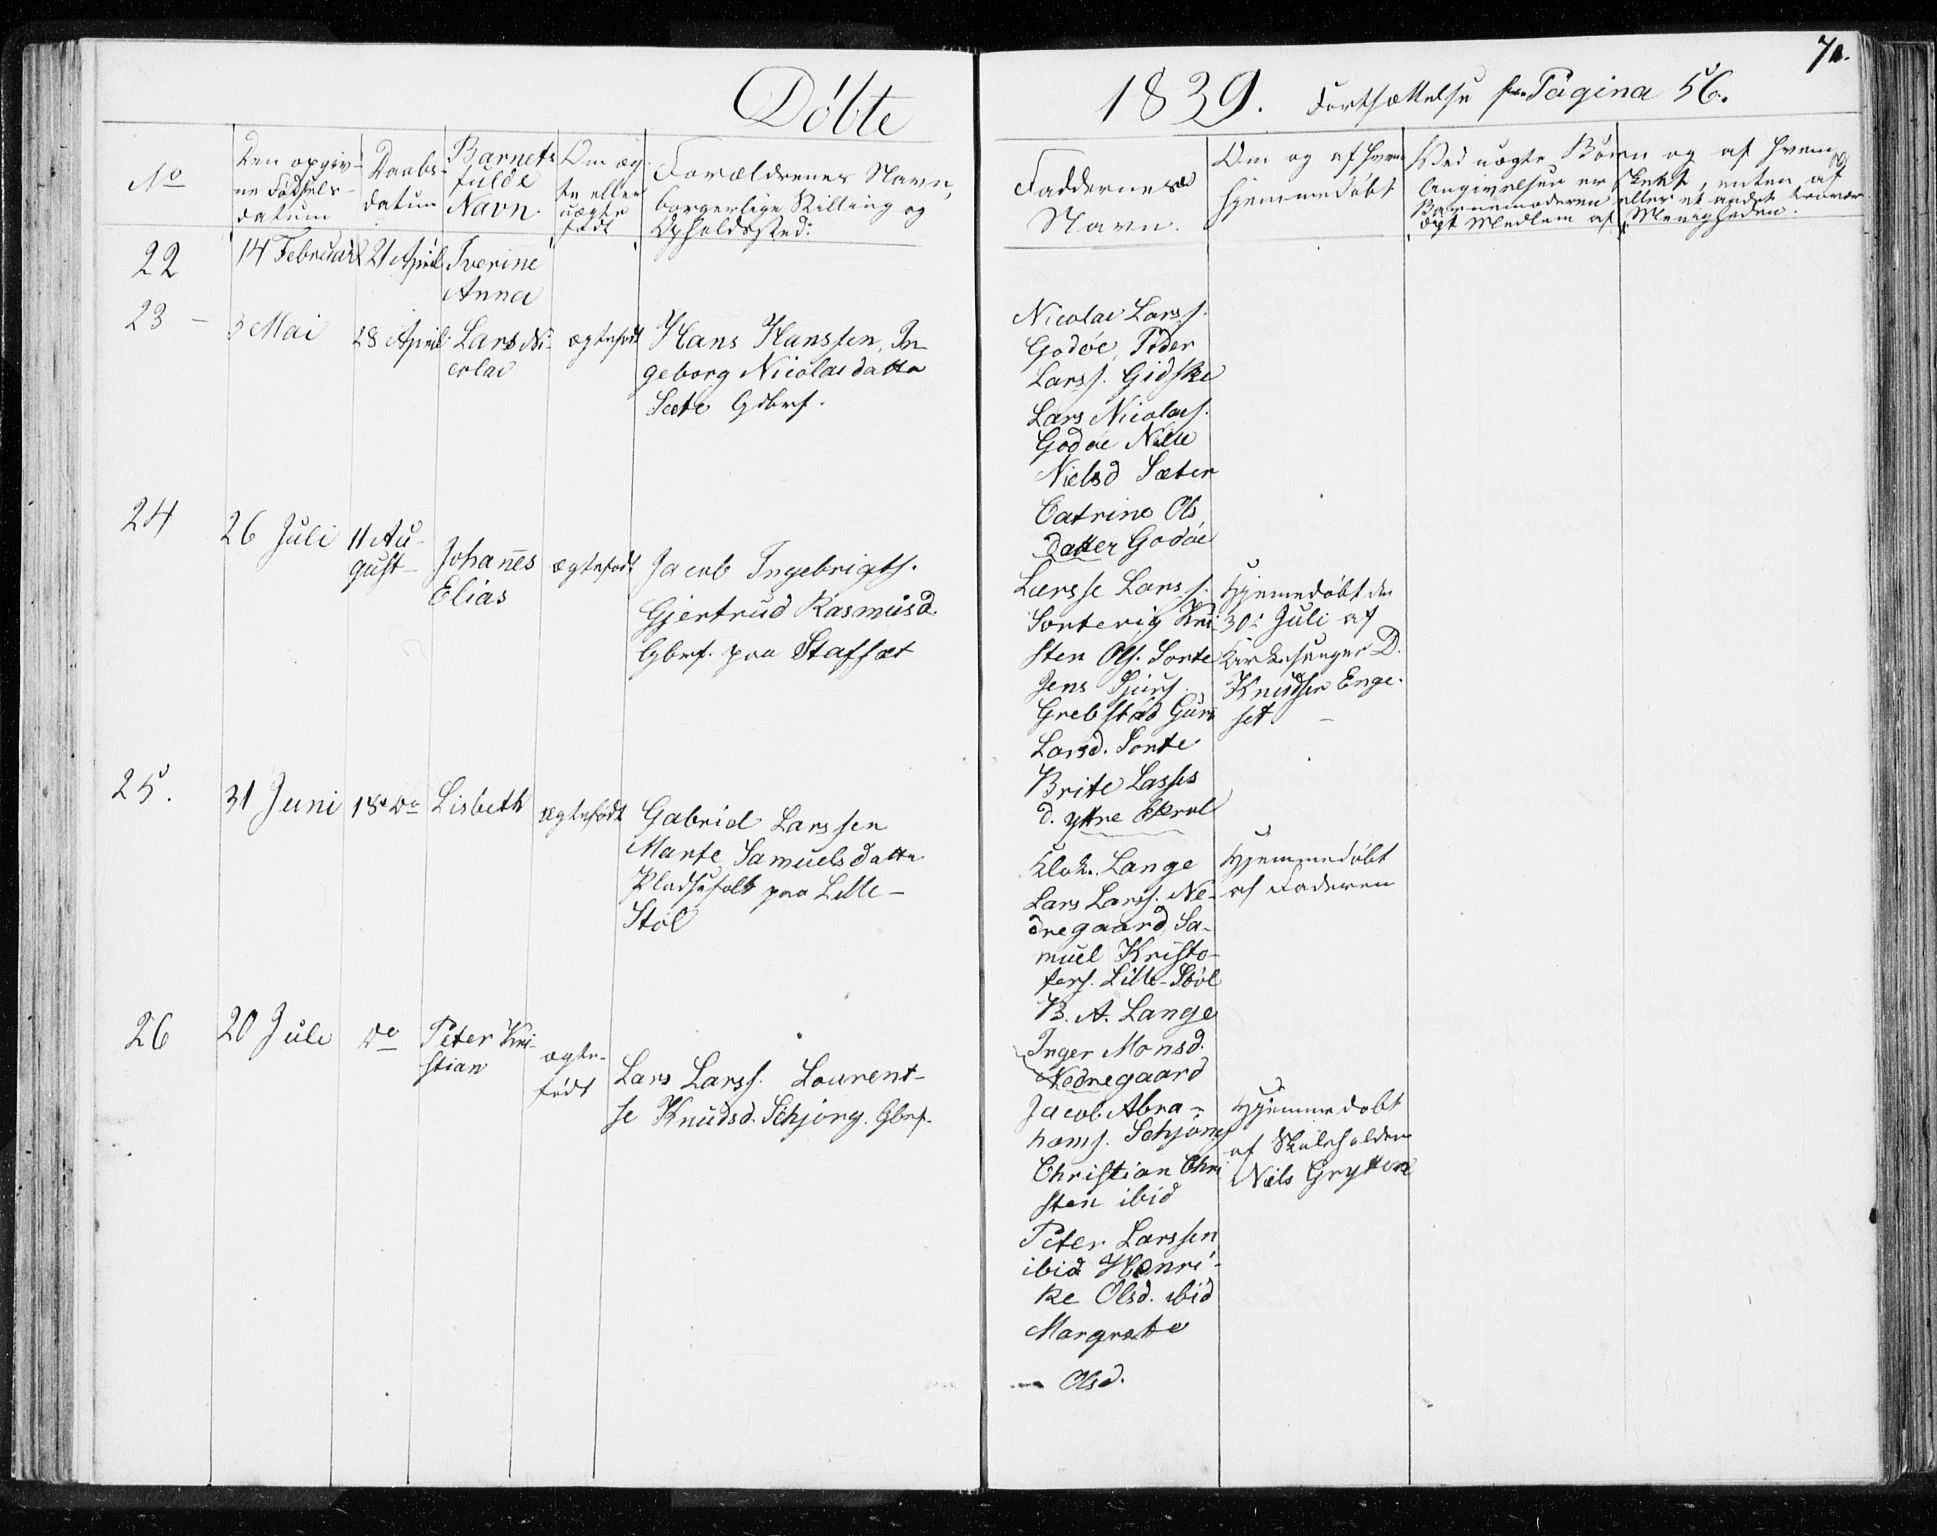 Døbte
1839. Fortsættelse fra Pagina 56.
71.
No
Den opgiv-
ne Fødsels-
datum
Daabs-
datum
Barnets
fulde
Navn
Om æg-
te eller
uægte
født
Forældrenes Navn,
borgerlige Stilling og
Opholdssted:
Faddernes
Navn.
Om og af hvem
hjemmedøbt
Ved uægte Børn og af hvem
Angivelsen er skeet, enten af
Barnemoderen eller et andet
Medlem af Menigheden.
22
14 Februar
21 April
Iverine
Anna
23 -
5 Mai
28 April
Lars Ni-
colai
ægtefødt
Hans Hanssen, In-
geborg Nicolaidatter
Sæte Gbrf.
Nicolai Larss.
Godøe, Peder
Larss. Gidske
Lars Nicolais.
Godøe Nille
Nielsd Sæter
Catrine Ols
datter Godøe
24
26 Juli
11 Au-
gust
Johan̅es
Elias
ægtefødt
Jacob Ingebrigts.
Gjertrud Rasmusd.
Gbrf. paa Stafsæt
Larsse Larss.
Sortevig Kri-
sten Ols. Sorte
Jens
Grebstad Guri
Larsd. Sorte
Brite Lasses
d. yttre
Hjemmedøbt den
30te Juli af
Kirkesanger D.
Knudsen Enge-
set -
25.
31 Juni
18 do
Lisbeth
ægtefødt
Gabriel Larssen
Marte Samuelsdatter
Pladsefolk paa Lille-
Støl
Klok. Lange
Lars Larss. Ne-
dregaard, Sa-
muel Kristo-
fers. Lille-Støl
B. A. Lange
Inger Monsd.
Nedregaard
Hjemmedøbt
af Faderen
26
20 Juli
do
Peter Kri-
stian
ægte-
født
Lars Larss. Lourent-
se Knudsd. Schjong. Gbrf.
Jacob Abra-
hams. Schjong
Christian Chri
sten ibid
Peter Larssen
ibid Henri-
ke Olsd. ibid
Margrete
Olsd.
Hjemmedøbt
af Skoleholder
Niels Gryttene